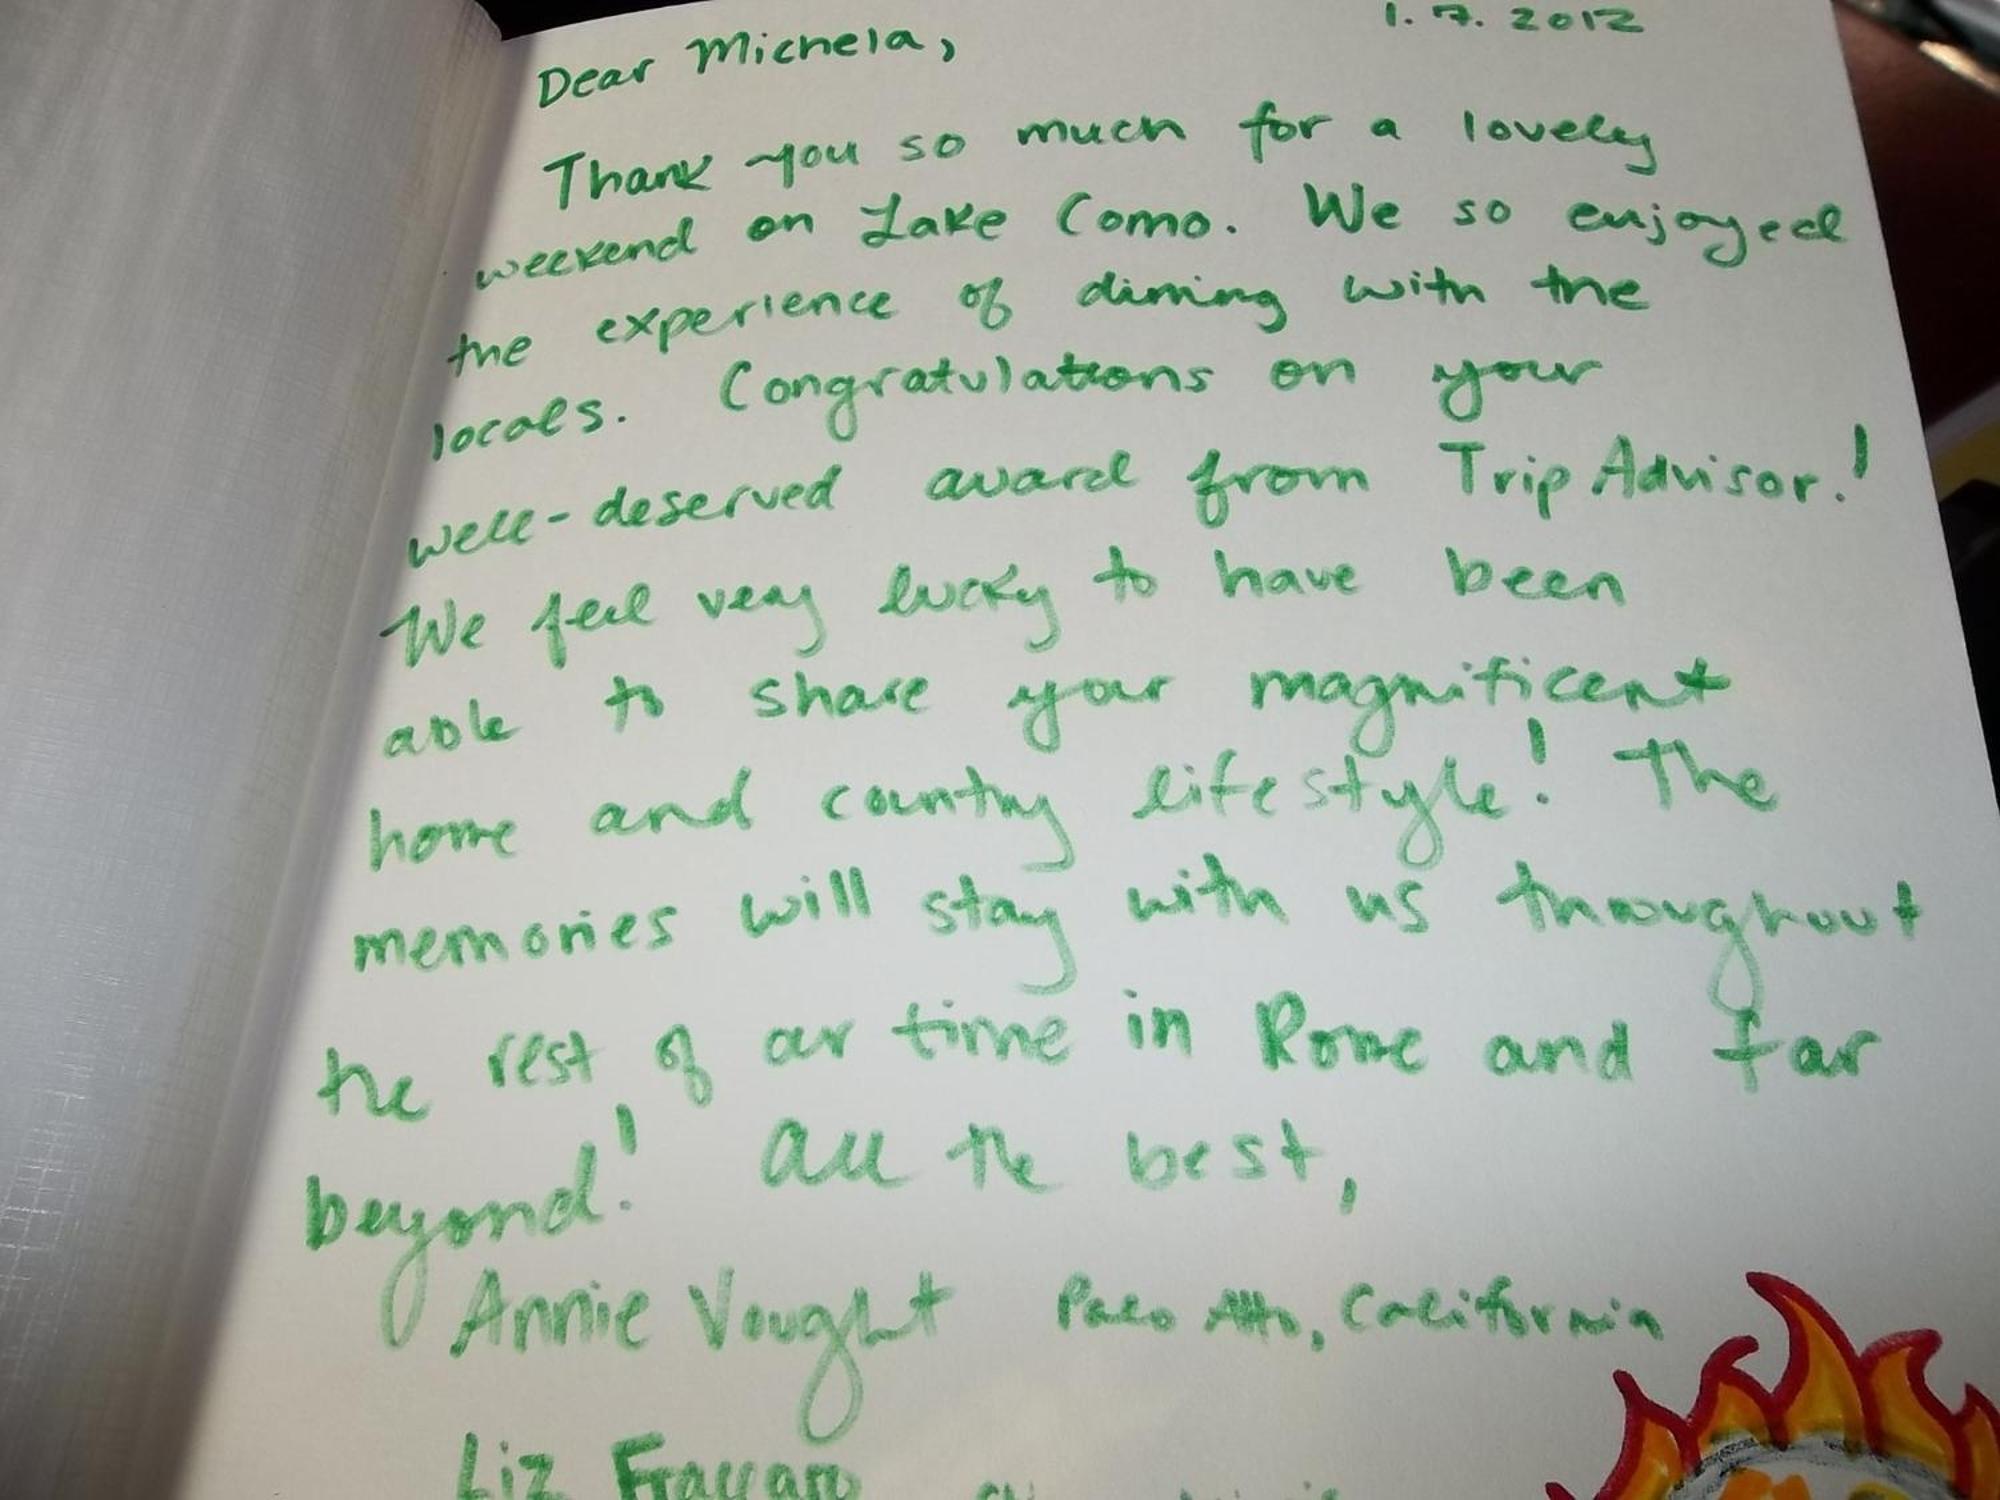 1.7.2012
Dear Michela,
Thank you so much for a lovely
weekend on Lake Como. We so enjoyed
the experience of dining with the
locals. Congratulations on your
well-deserved award from TripAdvisor!
We feel very lucky to have been
able to share your magnificent
home and country lifestyle! The
memories will stay with us throughout
the rest of our time in Rome and far
beyond! All the best,
Annie Vought Palo Alto, California
Liz Fraccaro